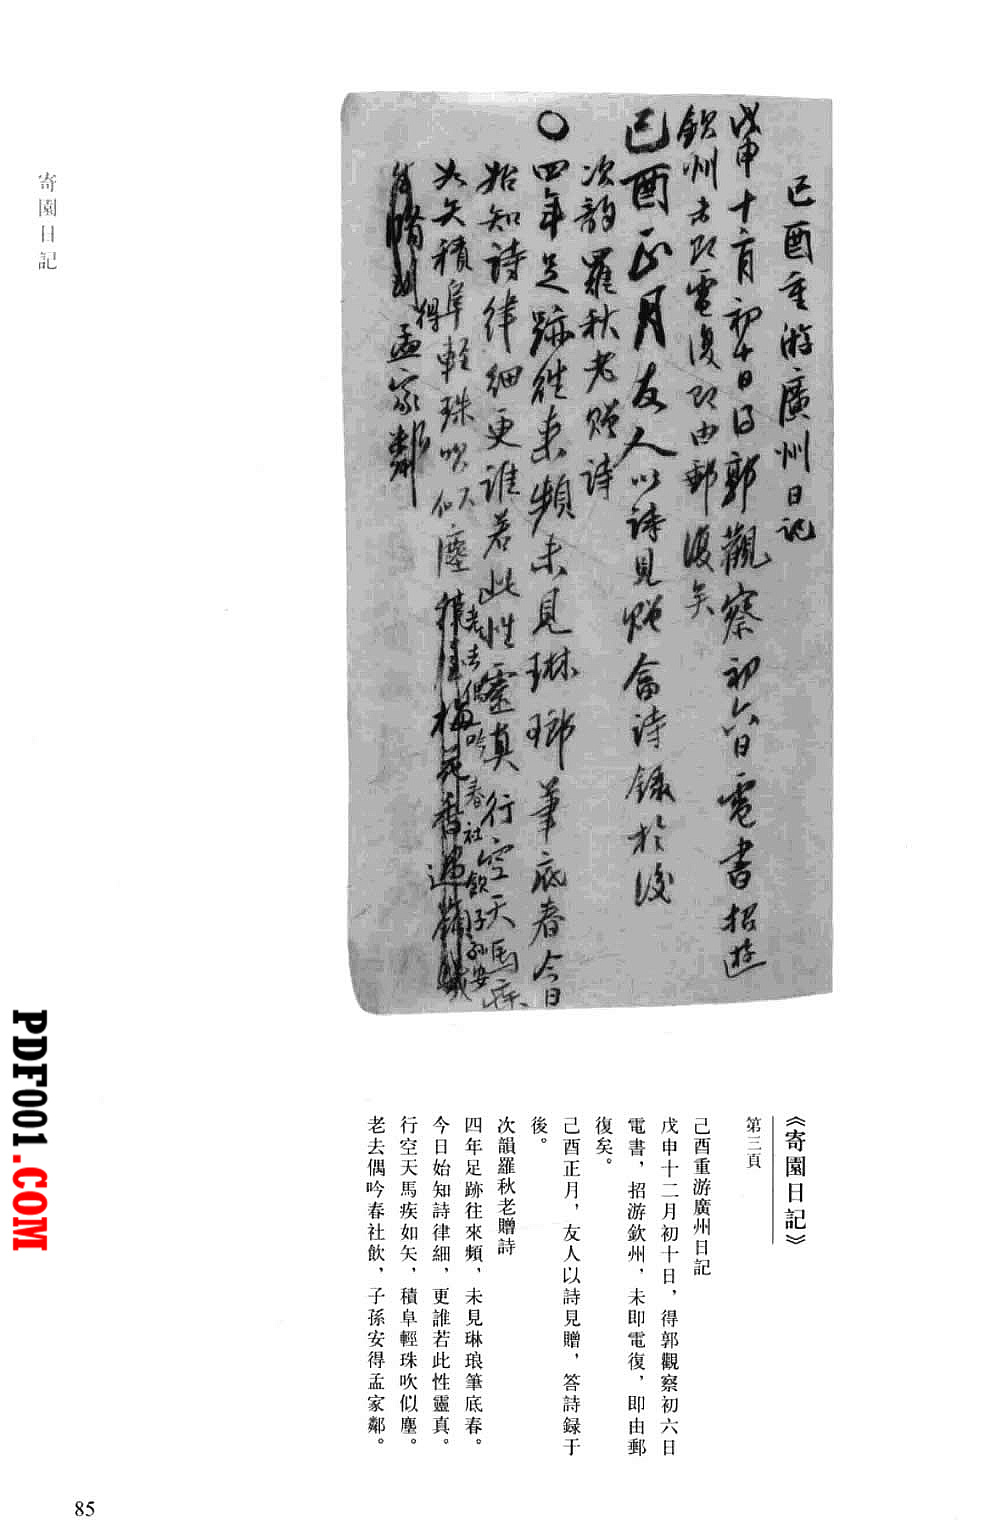 寄園日記
己酉重游廣州日記
戊申十二月初十日得郭觀察初六日電書招遊
欽州未即電復即由郵復矣
己酉正月友人以詩見贈畣詩錄於後
次韵羅秋老贈詩
○四年足跡往來頻未見琳瑯筆底春今日
始知詩律細更誰若此性靈真行空天馬疾
如矢積阜輕珠吹似塵
老去偶吟春社飲子孫安
得孟家鄰
《寄園日記》
第三頁
己酉重游廣州日記
戊申十二月初十日，得郭觀察初六日
電書，招游欽州，未即電復，即由郵
復矣。
己酉正月，友人以詩見贈，答詩録于
後。
次韻羅秋老贈詩
四年足跡往來頻，未見琳琅筆底春。
今日始知詩律細，更誰若此性靈真。
行空天馬疾如矢，積阜輕珠吹似塵。
老去偶吟春社飲，子孫安得孟家鄰。
PDF001.COM
85